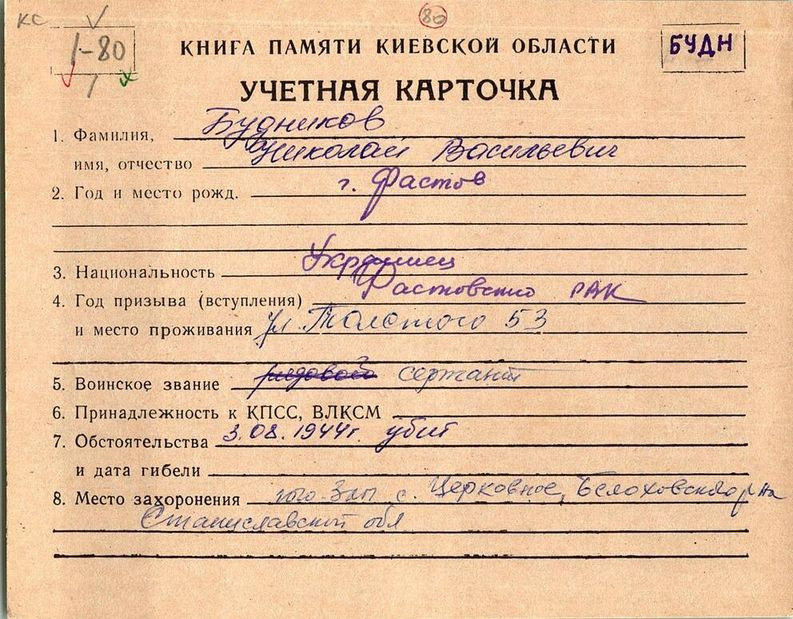 КС
80
1-80
КНИГА ПАМЯТИ КИЕВСКОЙ ОБЛАСТИ
БУДН
УЧЕТНАЯ КАРТОЧКА
1. Фамилия, Будников
имя, отчество Николай Васильевич
2. Год и место рожд. г. Фастов
3. Национальность Украинец
4. Год призыва (вступления) Фастовского РВК
и место проживания ул. Толстого 53
5. Воинское звание рядовой сержант
6. Принадлежность к КПСС, ВЛКСМ
7. Обстоятельства 3.08.1944г. убит
и дата гибели
8. Место захоронения юго-зап с. Церковное, р-на
Станиславской обл